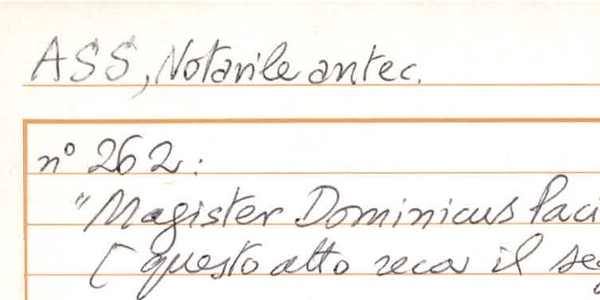 ASS, Notarile antec.
n° 262:
"Magister Dominicus Paci
[questo atto reca il se